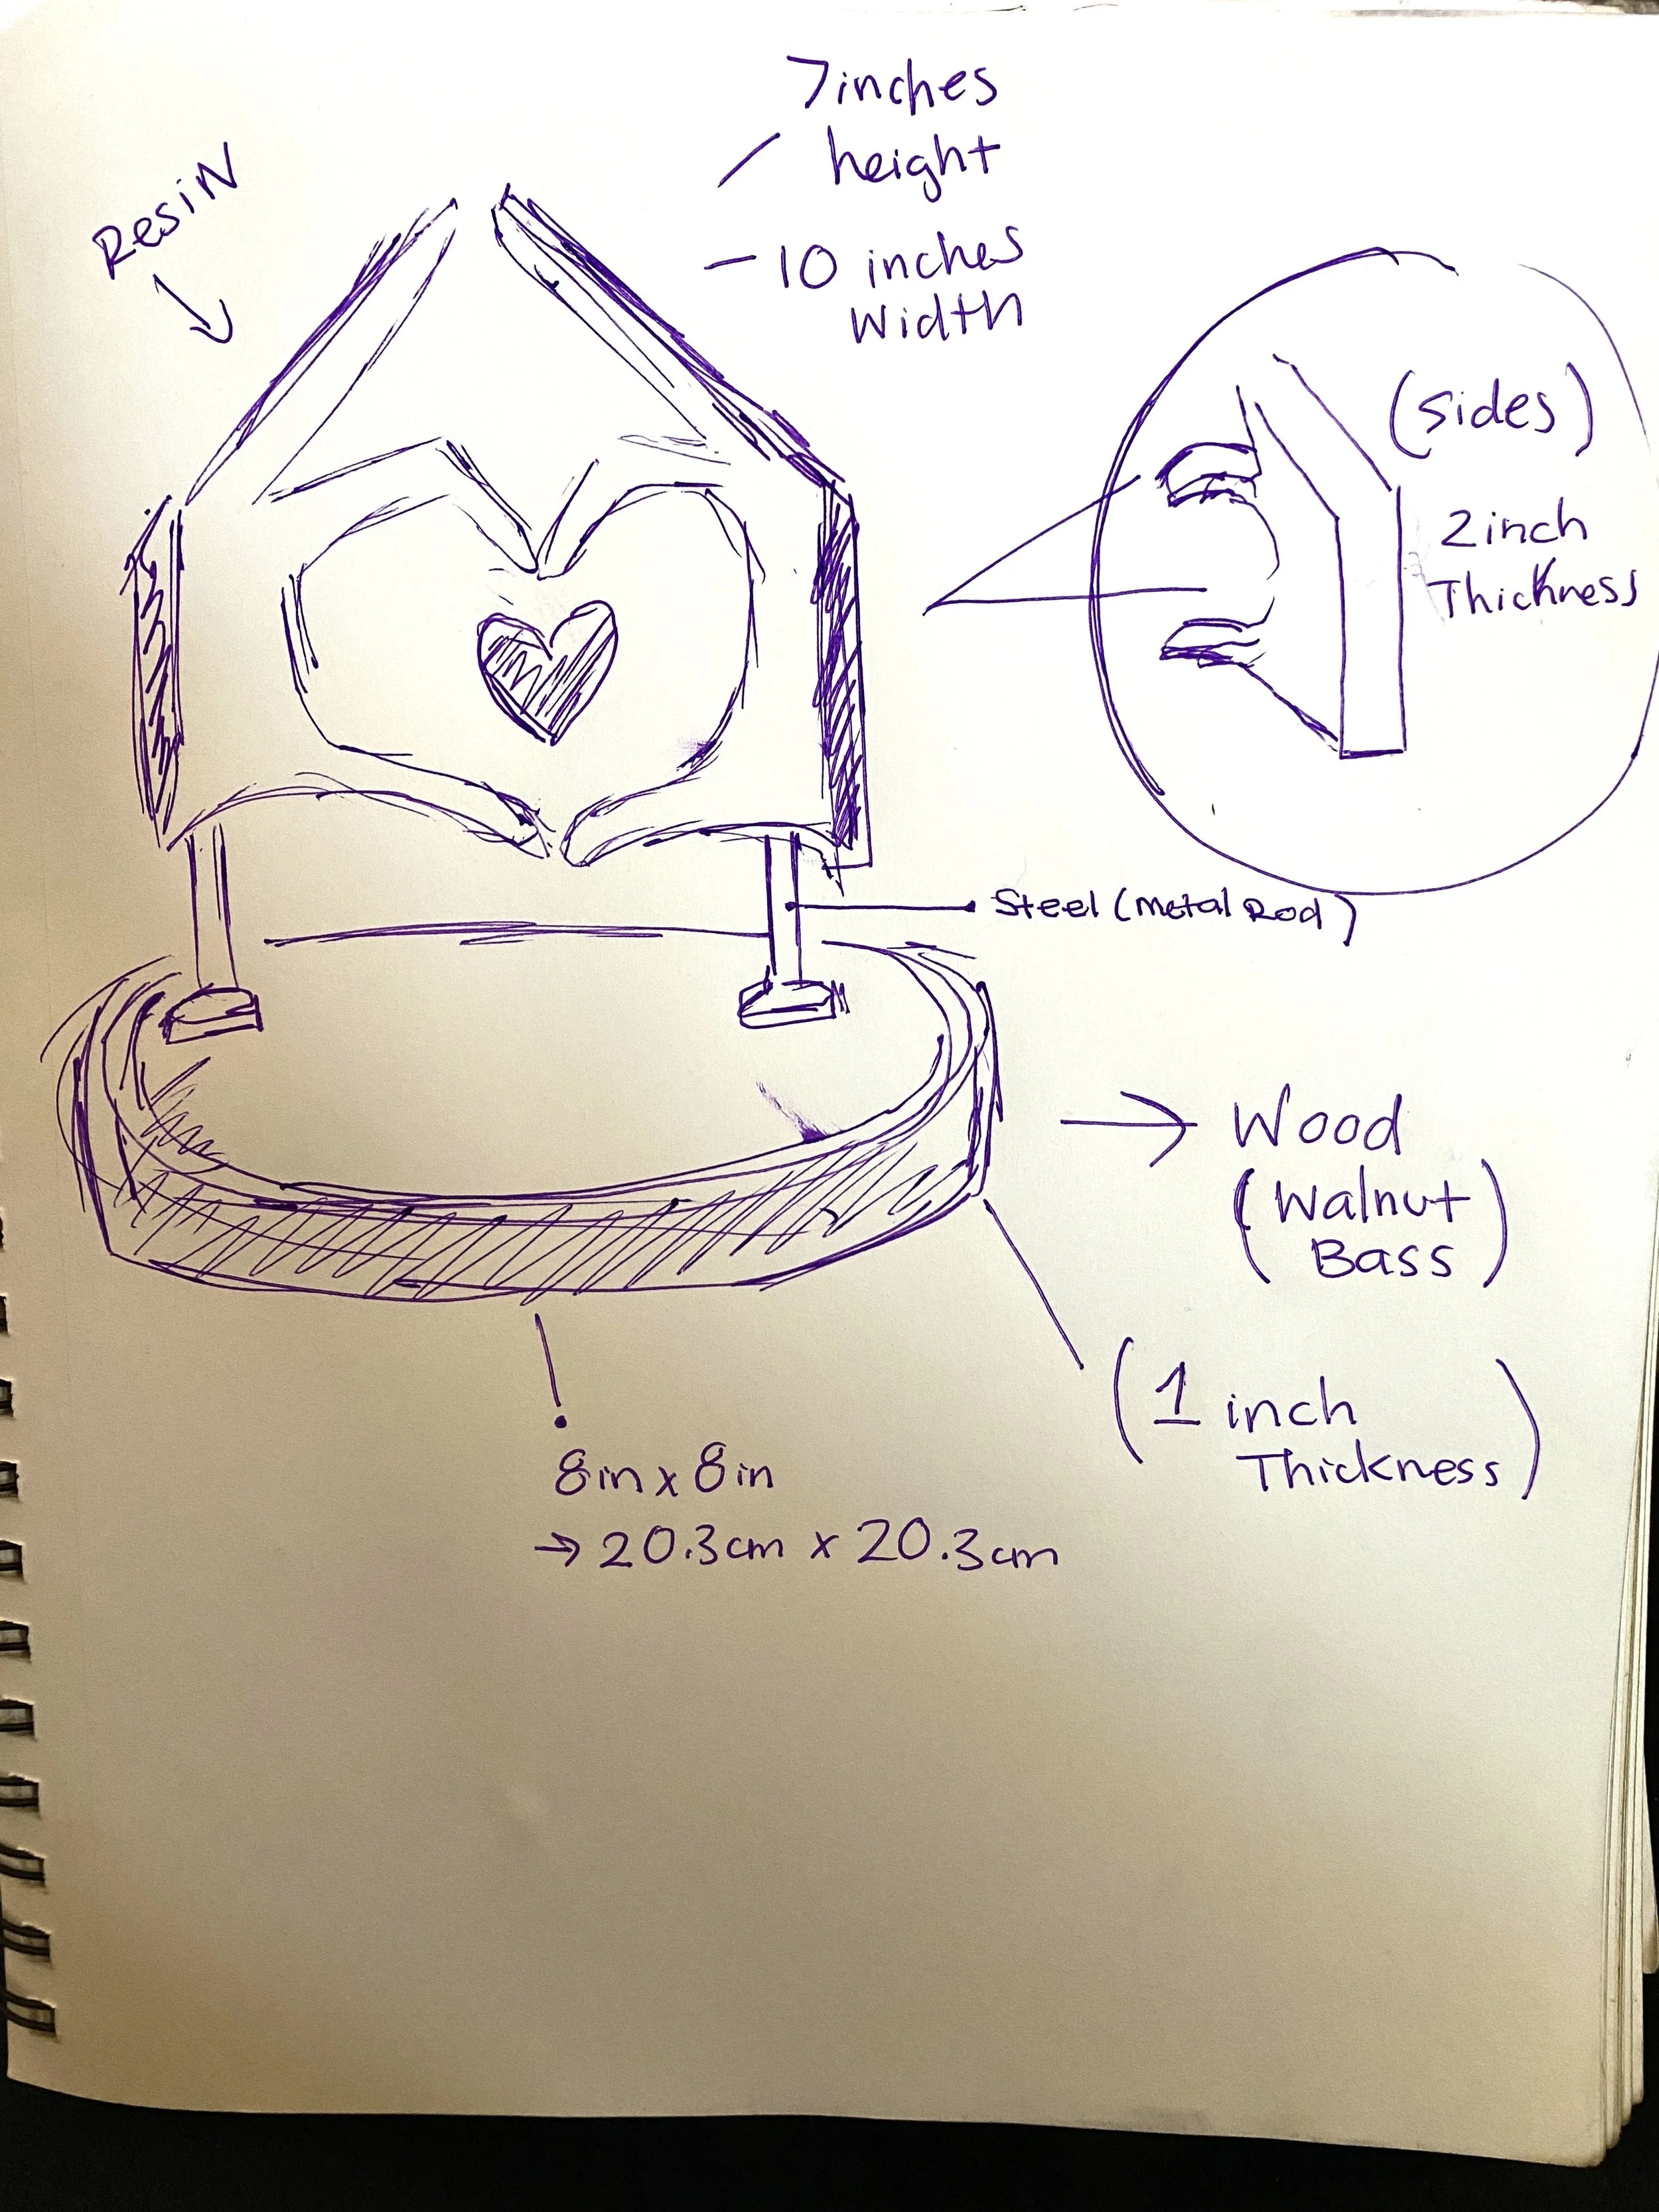 7inches
height
- 10 inches
Width
Resin
(sides)
2inch
Thickness
Steel (Metal Rod)
→ Wood
(Walnut
Bass)
(1 inch
Thickness)
8in x 8in
→ 20.3cm x 20.3cm